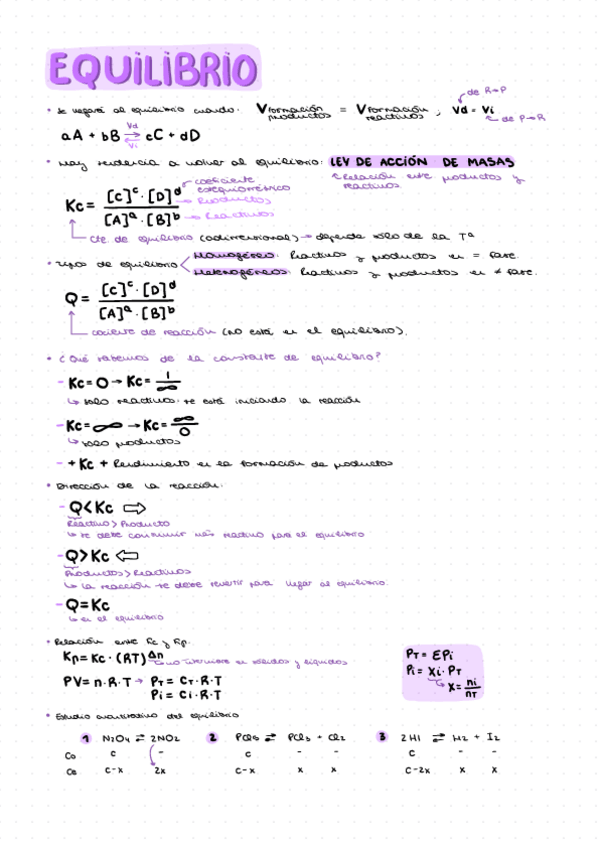 EQUILIBRIO
• Se llegará al equilibrio cuando: Vformación productos = Vformación reactivos ; Vd = Vi
de R→P
de P→R
aA + bB ⇄ cC + dD
Vd
Vi
• Hay tendencia a volver al equilibrio: LEY DE ACCIÓN DE MASAS
Relación entre productos y reactivos.
coeficiente estequiométrico
Kc = [C]ᶜ · [D]ᵈ → Productos
[A]ᵃ · [B]ᵇ → Reactivos
Cte. de equilibrio (adimensional) → depende sólo de la Tª
• Tipos de equilibrio
Homogéneo: Reactivos y productos en = fase.
Heterogéneos: Reactivos y productos en ≠ fase.
Q = [C]ᶜ · [D]ᵈ
[A]ᵃ · [B]ᵇ
cociente de reacción (no está en el equilibrio).
• ¿Qué sabemos de la constante de equilibrio?
- Kc = 0 → Kc = 1/∞
↳ solo reactivos: se está iniciando la reacción
- Kc = ∞ → Kc = ∞/0
↳ solo productos
- + Kc + Rendimiento en la formación de productos
• Dirección de la reacción:
- Q < Kc ⇨
Reactivo > Producto
↳ se debe consumir más reactivo para el equilibrio
- Q > Kc ⇦
Productos > Reactivos
↳ La reacción se debe revertir para llegar al equilibrio.
- Q = Kc
↳ en el equilibrio
• Relación entre Kc y Kp.
Kp = Kc · (RT)^Δn → no interviene en sólidos y líquidos
PV = n · R · T → PT = CT · R · T
Pi = Ci · R · T
PT = ΣPi
Pi = Xi · PT
↳ X = ni/nT
• Estudio cuantitativo del equilibrio
1 N₂O₄ ⇄ 2NO₂ 2 PCl₅ ⇄ PCl₃ + Cl₂ 3 2HI ⇄ H₂ + I₂
Co C - C - - C - -
Ce C-x 2x C-x x x C-2x x x